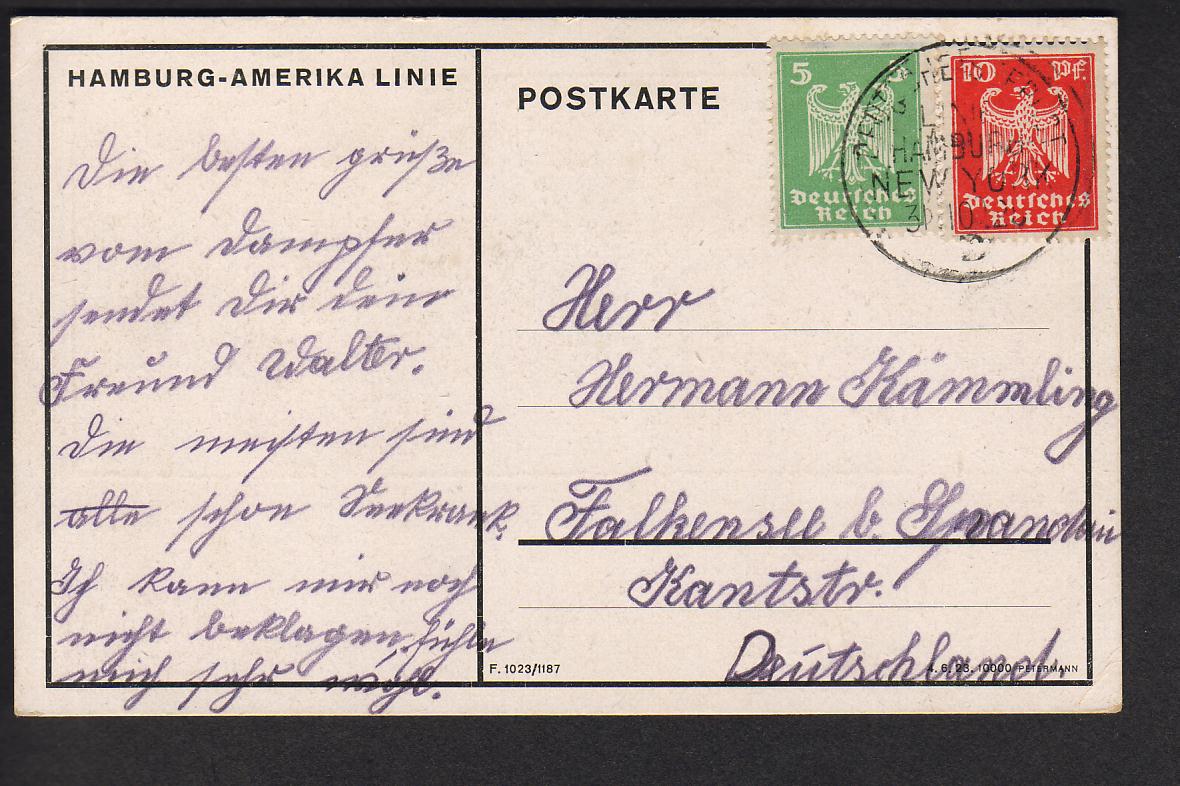 HAMBURG-AMERIKA LINIE
Die besten grüße
vom Dampfer
sendet Dir dein
Freund Walter.
Die meisten sind
alle schon Seekrank.
Ich kann mir noch
nicht beklagen, fühle
mich sehr wohl.
POSTKARTE
5 5
Deutsches
Reich
10 Pf.
Deutsches
Reich
HAMBURG
NEW YORK
Herr
Hermann Kämmling
Falkensee b. Spandau
Kantstr.
Deutschland.
F. 1023/1187
4. 6. 23. 10000 PETERMANN